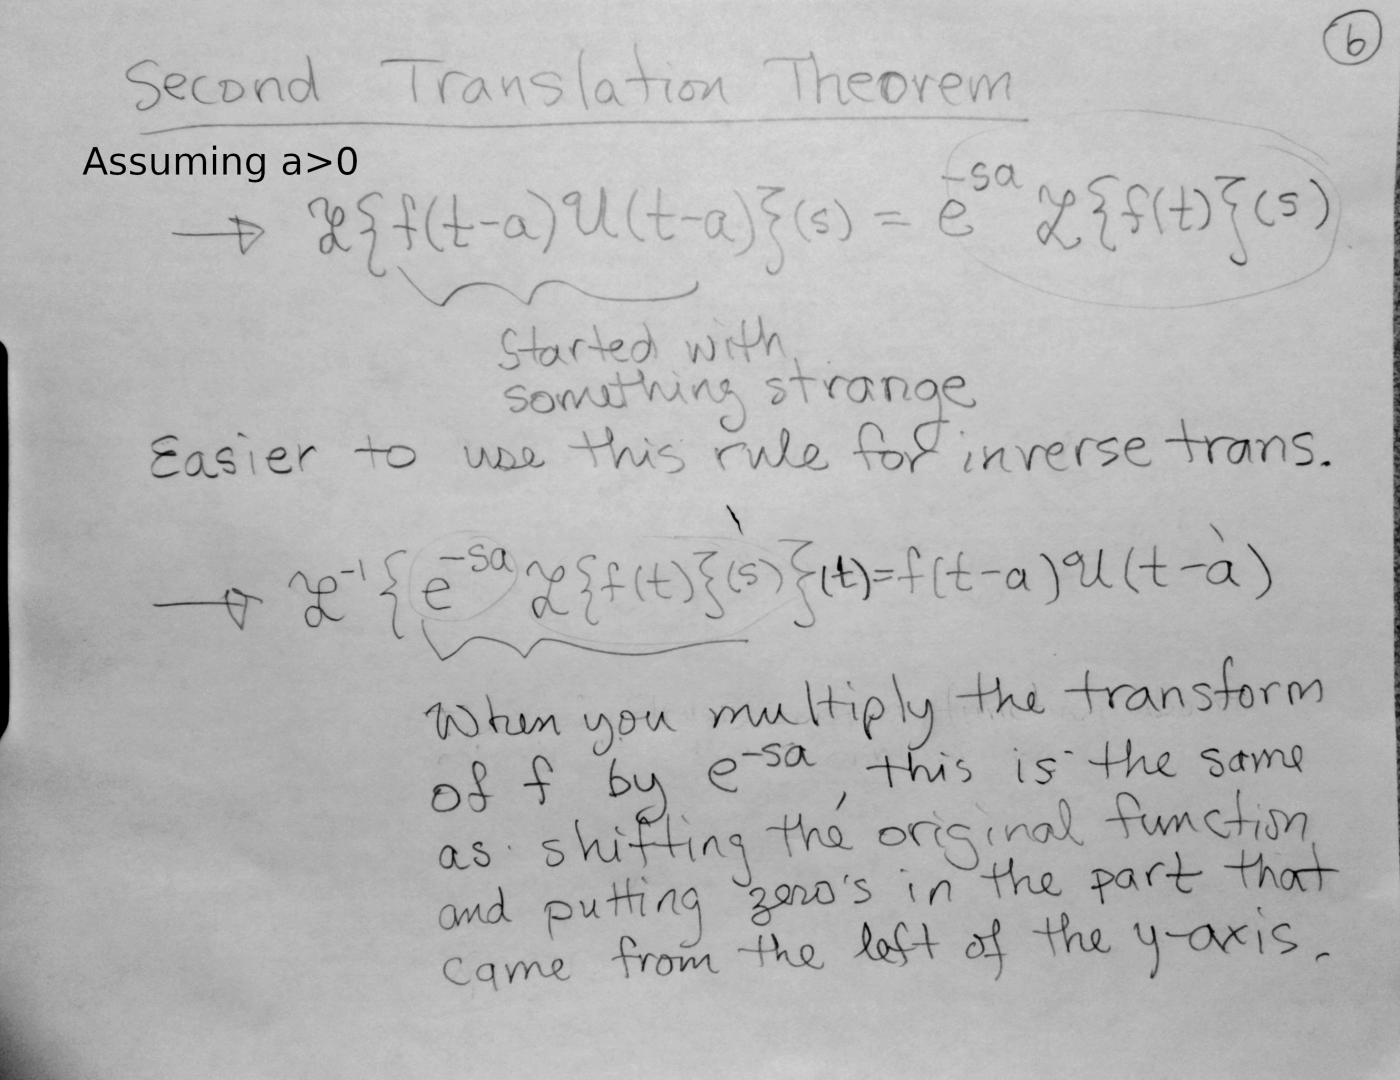 6
Second Translation Theorem
Assuming a>0
→ ℒ{f(t-a)𝒰(t-a)}(s) = e^-sa ℒ{f(t)}(s)
Started with
something strange
Easier to use this rule for inverse trans.
→ ℒ^-1{e^-sa ℒ{f(t)}(s)}(t)=f(t-a)𝒰(t-a)
When you multiply the transform
of f by e^-sa, this is the same
as shifting the original function
and putting zero's in the part that
came from the left of the y-axis.